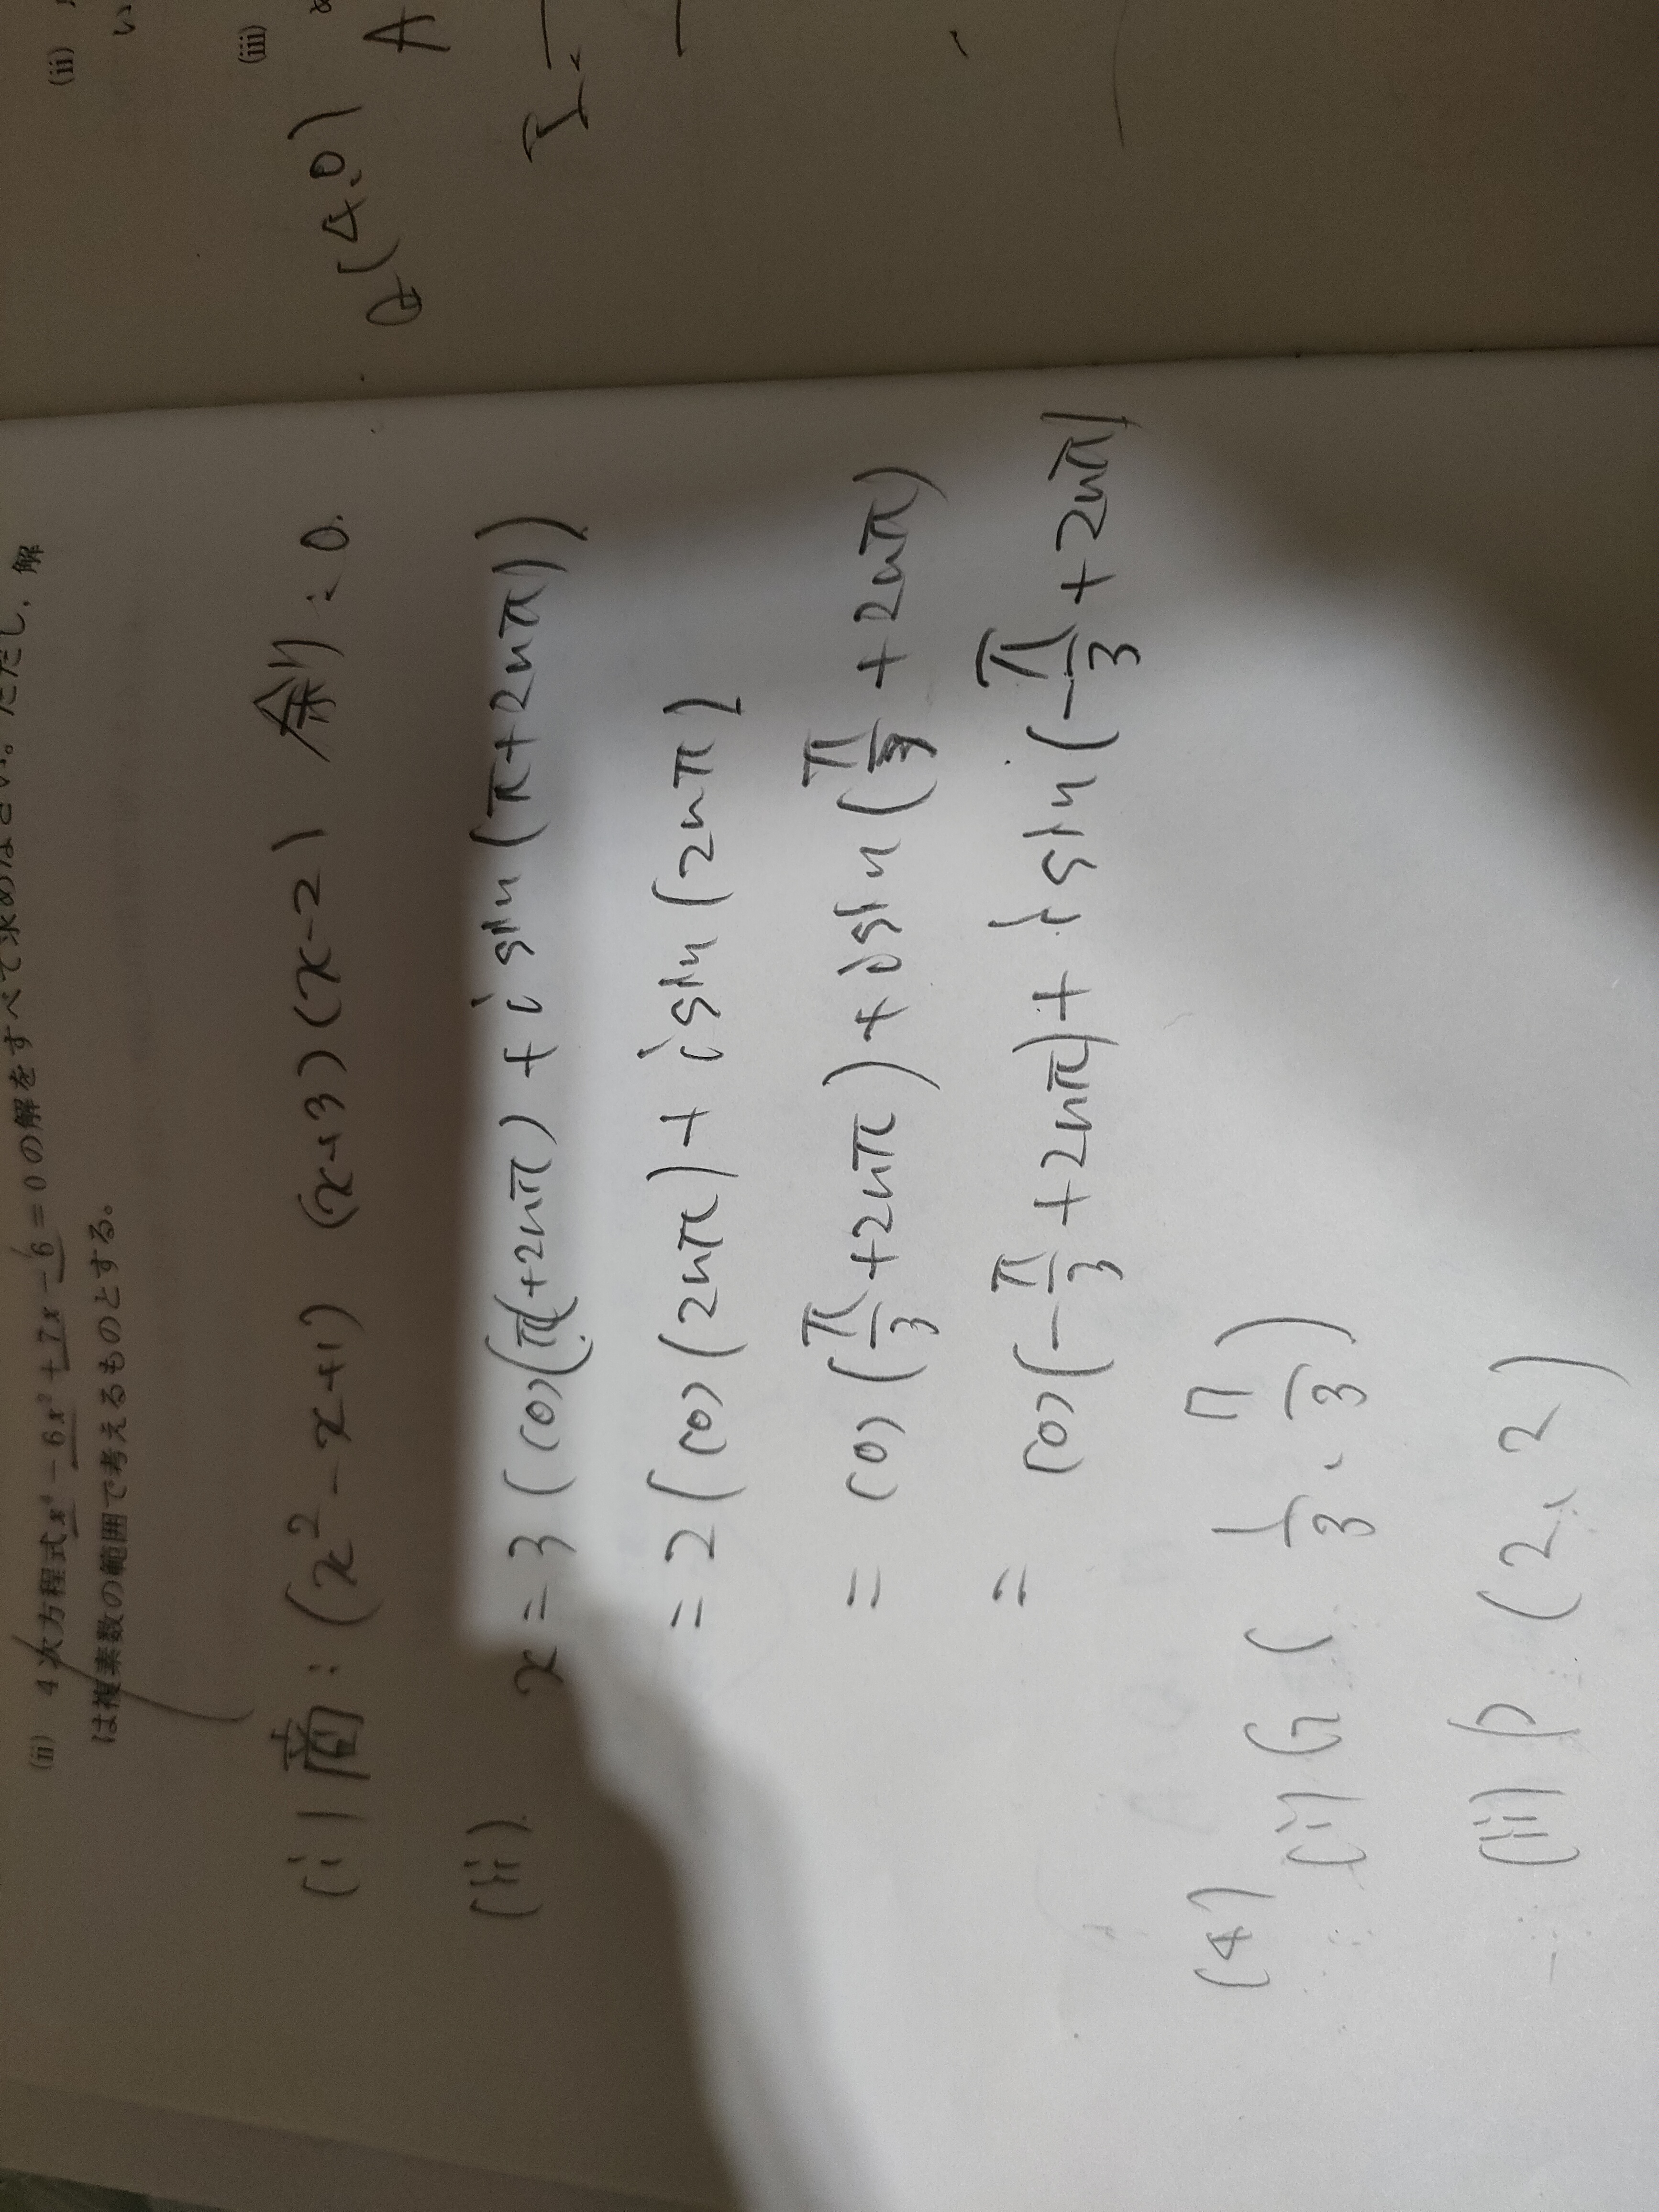 (ii) 4次方程式 x⁴ − 6x² + 7x − 6 = 0 の解をすべて求めなさい。ただし、解
は複素数の範囲で考えるものとする。
(i) 商: (x² − x + 1) (x+3)(x−2) 余り: 0.
(ii). x = 3(cos(π+2nπ) + i sin(π+2nπ))
= 2(cos(2nπ) + i sin(2nπ)
= cos(π/3 + 2nπ) + i sin(π/3 + 2nπ)
= cos(−π/3 + 2nπ) + i sin(−π/3 + 2nπ)
(4) (i) G(1/3, 7/3)
(ii) P(2, 2)
(ii)
い
(iii)
Q(4,0)
A